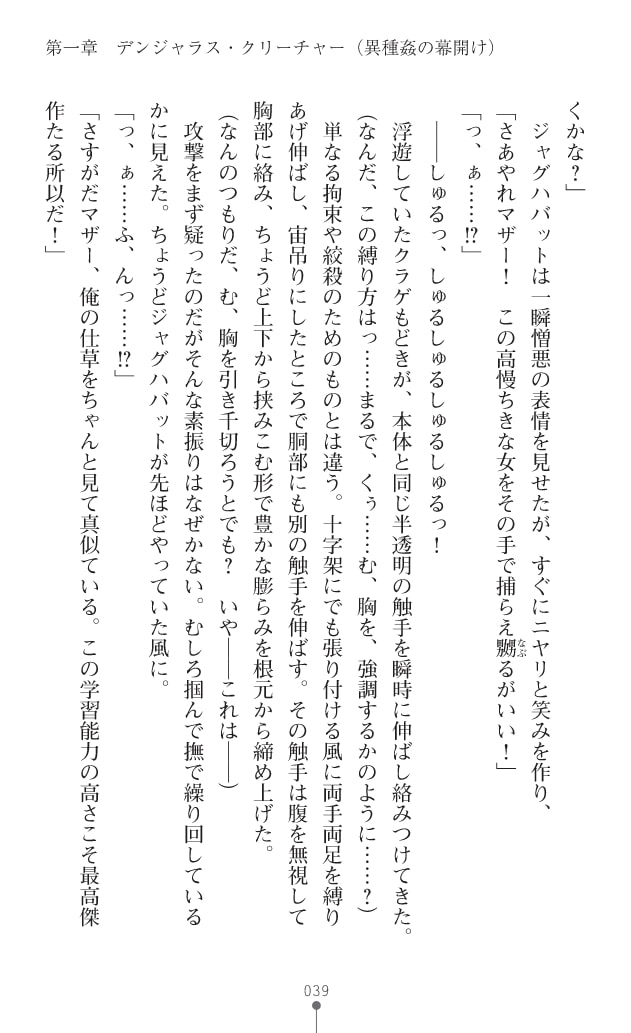 第一章　デンジャラス・クリーチャー（異種姦の幕開け）
くかな？」
　ジャグハバットは一瞬憎悪の表情を見せたが、すぐにニヤリと笑みを作り、
「さあやれマザー！　この高慢ちきな女をその手で捕らえ嬲るがいい！」
なぶ
「っ、ぁ……!?」
　――しゅるっ、しゅるしゅるしゅるっ！
　浮遊していたクラゲもどきが、本体と同じ半透明の触手を瞬時に伸ばし絡みつけてきた。
（なんだ、この縛り方はっ……まるで、くぅ……む、胸を、強調するかのように……？）
　単なる拘束や絞殺のためのものとは違う。十字架にでも張り付ける風に両手両足を縛り
あげ伸ばし、宙吊りにしたところで胴部にも別の触手を伸ばす。その触手は腹を無視して
胸部に絡み、ちょうど上下から挟みこむ形で豊かな膨らみを根元から締め上げた。
（なんのつもりだ、む、胸を引き千切ろうとでも？　いや――これは――）
　攻撃をまず疑ったのだがそんな素振りはなぜかない。むしろ掴んで撫で繰り回している
かに見えた。ちょうどジャグハバットが先ほどやっていた風に。
「っ、ぁ……ふ、んっ……!?」
「さすがだマザー、俺の仕草をちゃんと見て真似ている。この学習能力の高さこそ最高傑
作たる所以だ！」
039